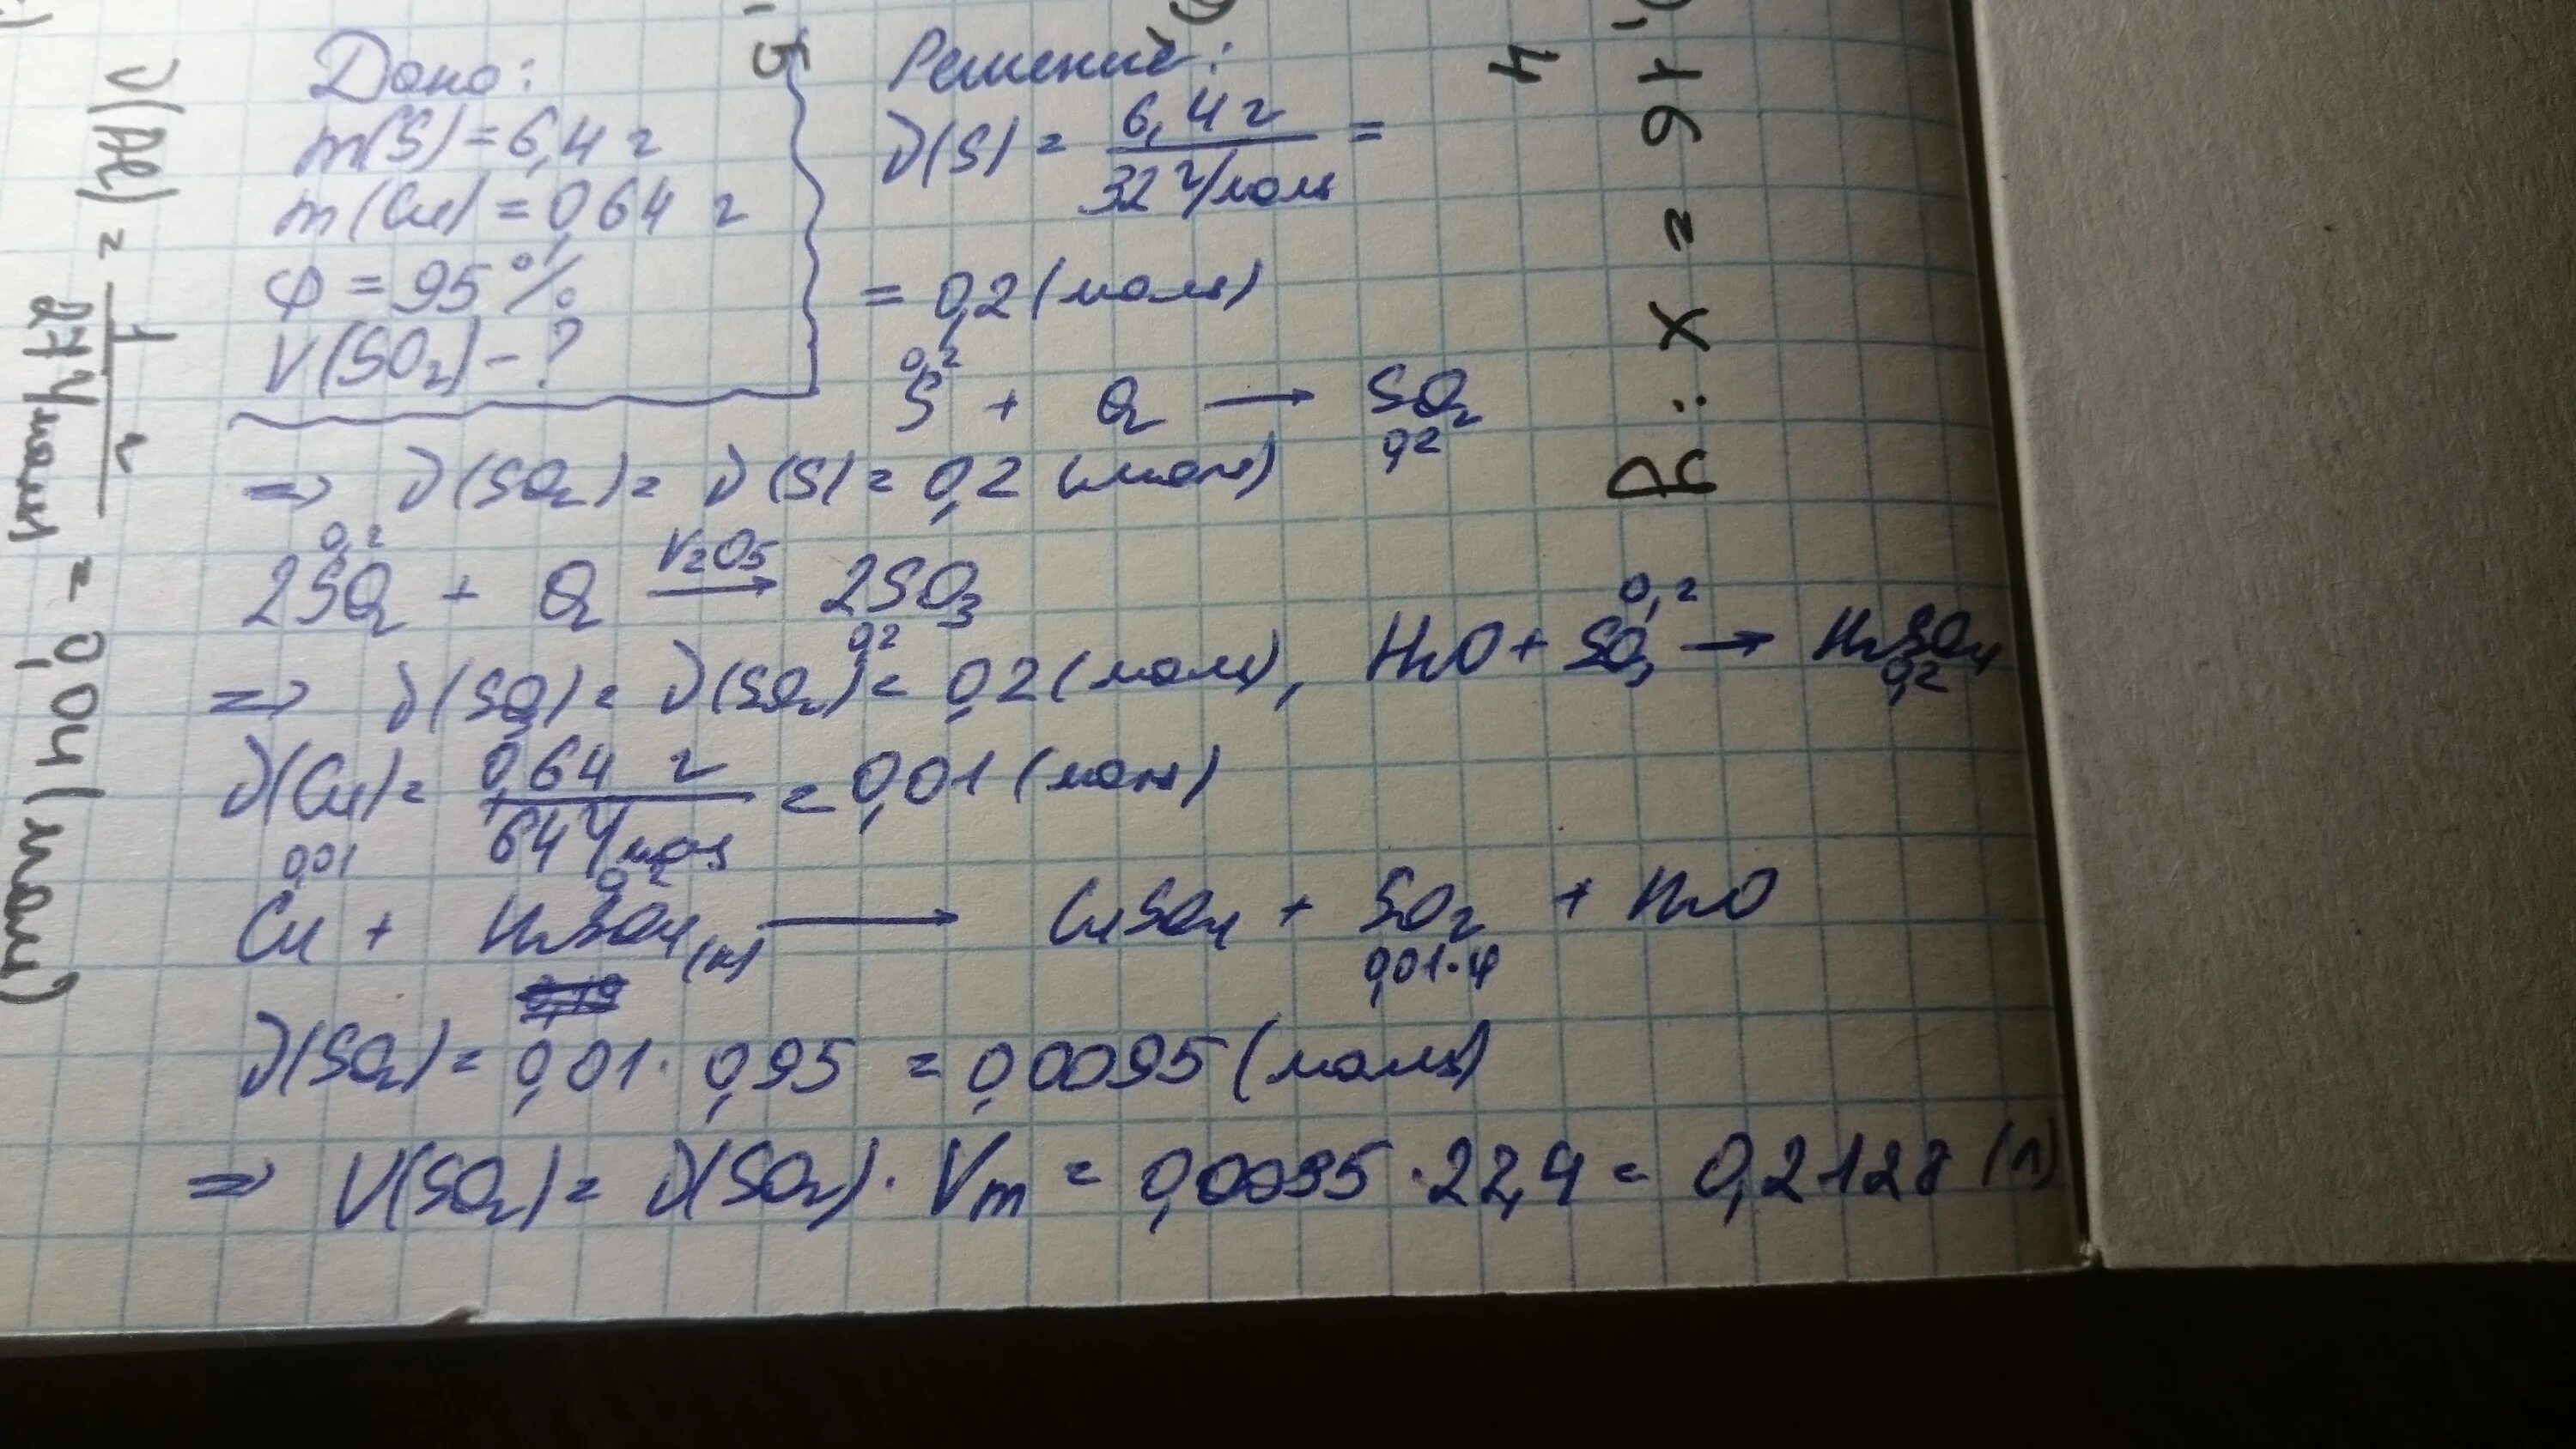 Дано:
m(S) = 6,4 г
m(Cu) = 0,64 г
φ = 95 %
V(SO2) - ?
Решение:
ν(S) = 6,4 г / 32 г/моль =
= 0,2 (моль)
0,2
S + O2 → SO2
0,2
=> ν(SO2) = ν(S) = 0,2 (моль)
0,2
V2O5
2SO2 + O2 → 2SO3
0,2
=> ν(SO3) = ν(SO2) = 0,2 (моль),
0,2
H2O + SO3 → H2SO4
0,2
ν(Cu) = 0,64 г / 64 г/моль = 0,01 (моль)
0,01 0,2
Cu + H2SO4(к) → CuSO4 + SO2 + H2O
0,01·φ
ν(SO2) = 0,01 · 0,95 = 0,0095 (моль)
=> V(SO2) = ν(SO2) · Vm = 0,0095 · 22,4 = 0,2128 (л)
ν(Al) = 1 / 27 г/моль = 0,04 (моль)
R: x = 91
4
5